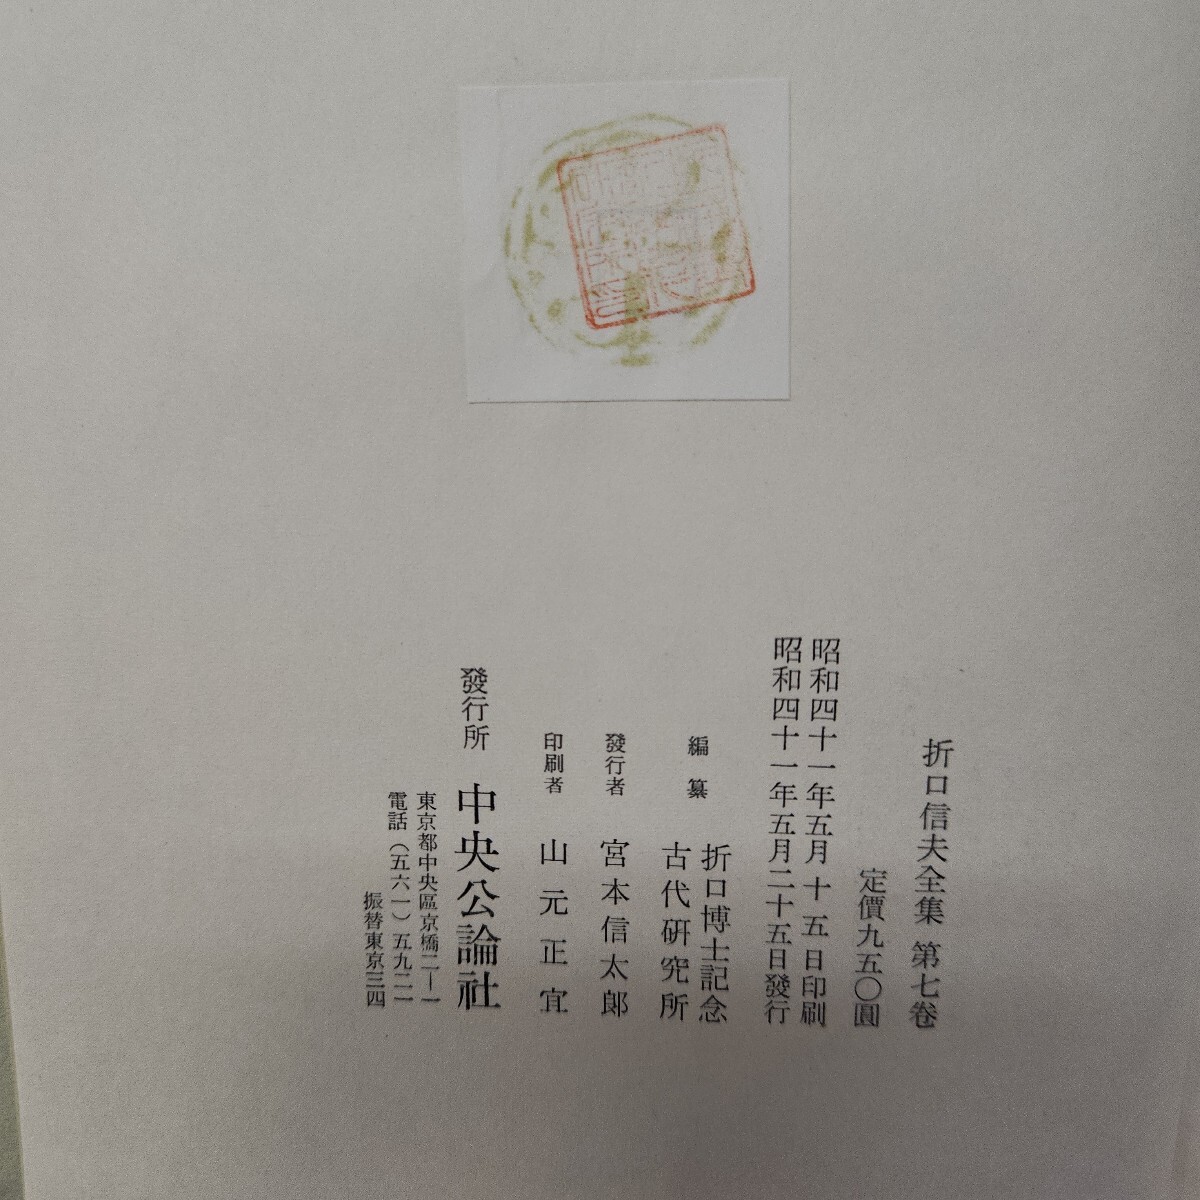 折口信夫全集 第七卷
定價九五〇圓
昭和四十一年五月十五日印刷
昭和四十一年五月二十五日發行
編纂 折口博士記念
古代研究所
發行者 宮本信太郎
印刷者 山元正宜
發行所 中央公論社
東京都中央區京橋二ー一
電話(五六一)五九二一
振替東京三四